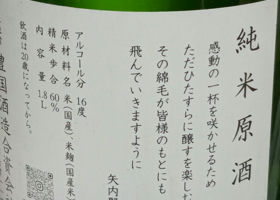 純米原酒
感動の一杯を咲かせるため
ただひたすらに醸すを楽しむ
その綿毛が皆様のもとにも
飛んでいきますように
矢内
アルコール分 16度
原材料名 米(国産)、米麹(国産米
精米歩合 60%
内容量 1.8L
飲酒は20歳になってから。
豊国酒造合資会